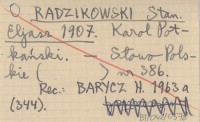 RADZIKOWSKI Stan.
Eljasz 1907. Karol Pot-
kański. — Słowo Pols-
kie ( ) nr 386.
Rec.: BARYCZ H. 1963a
(344).